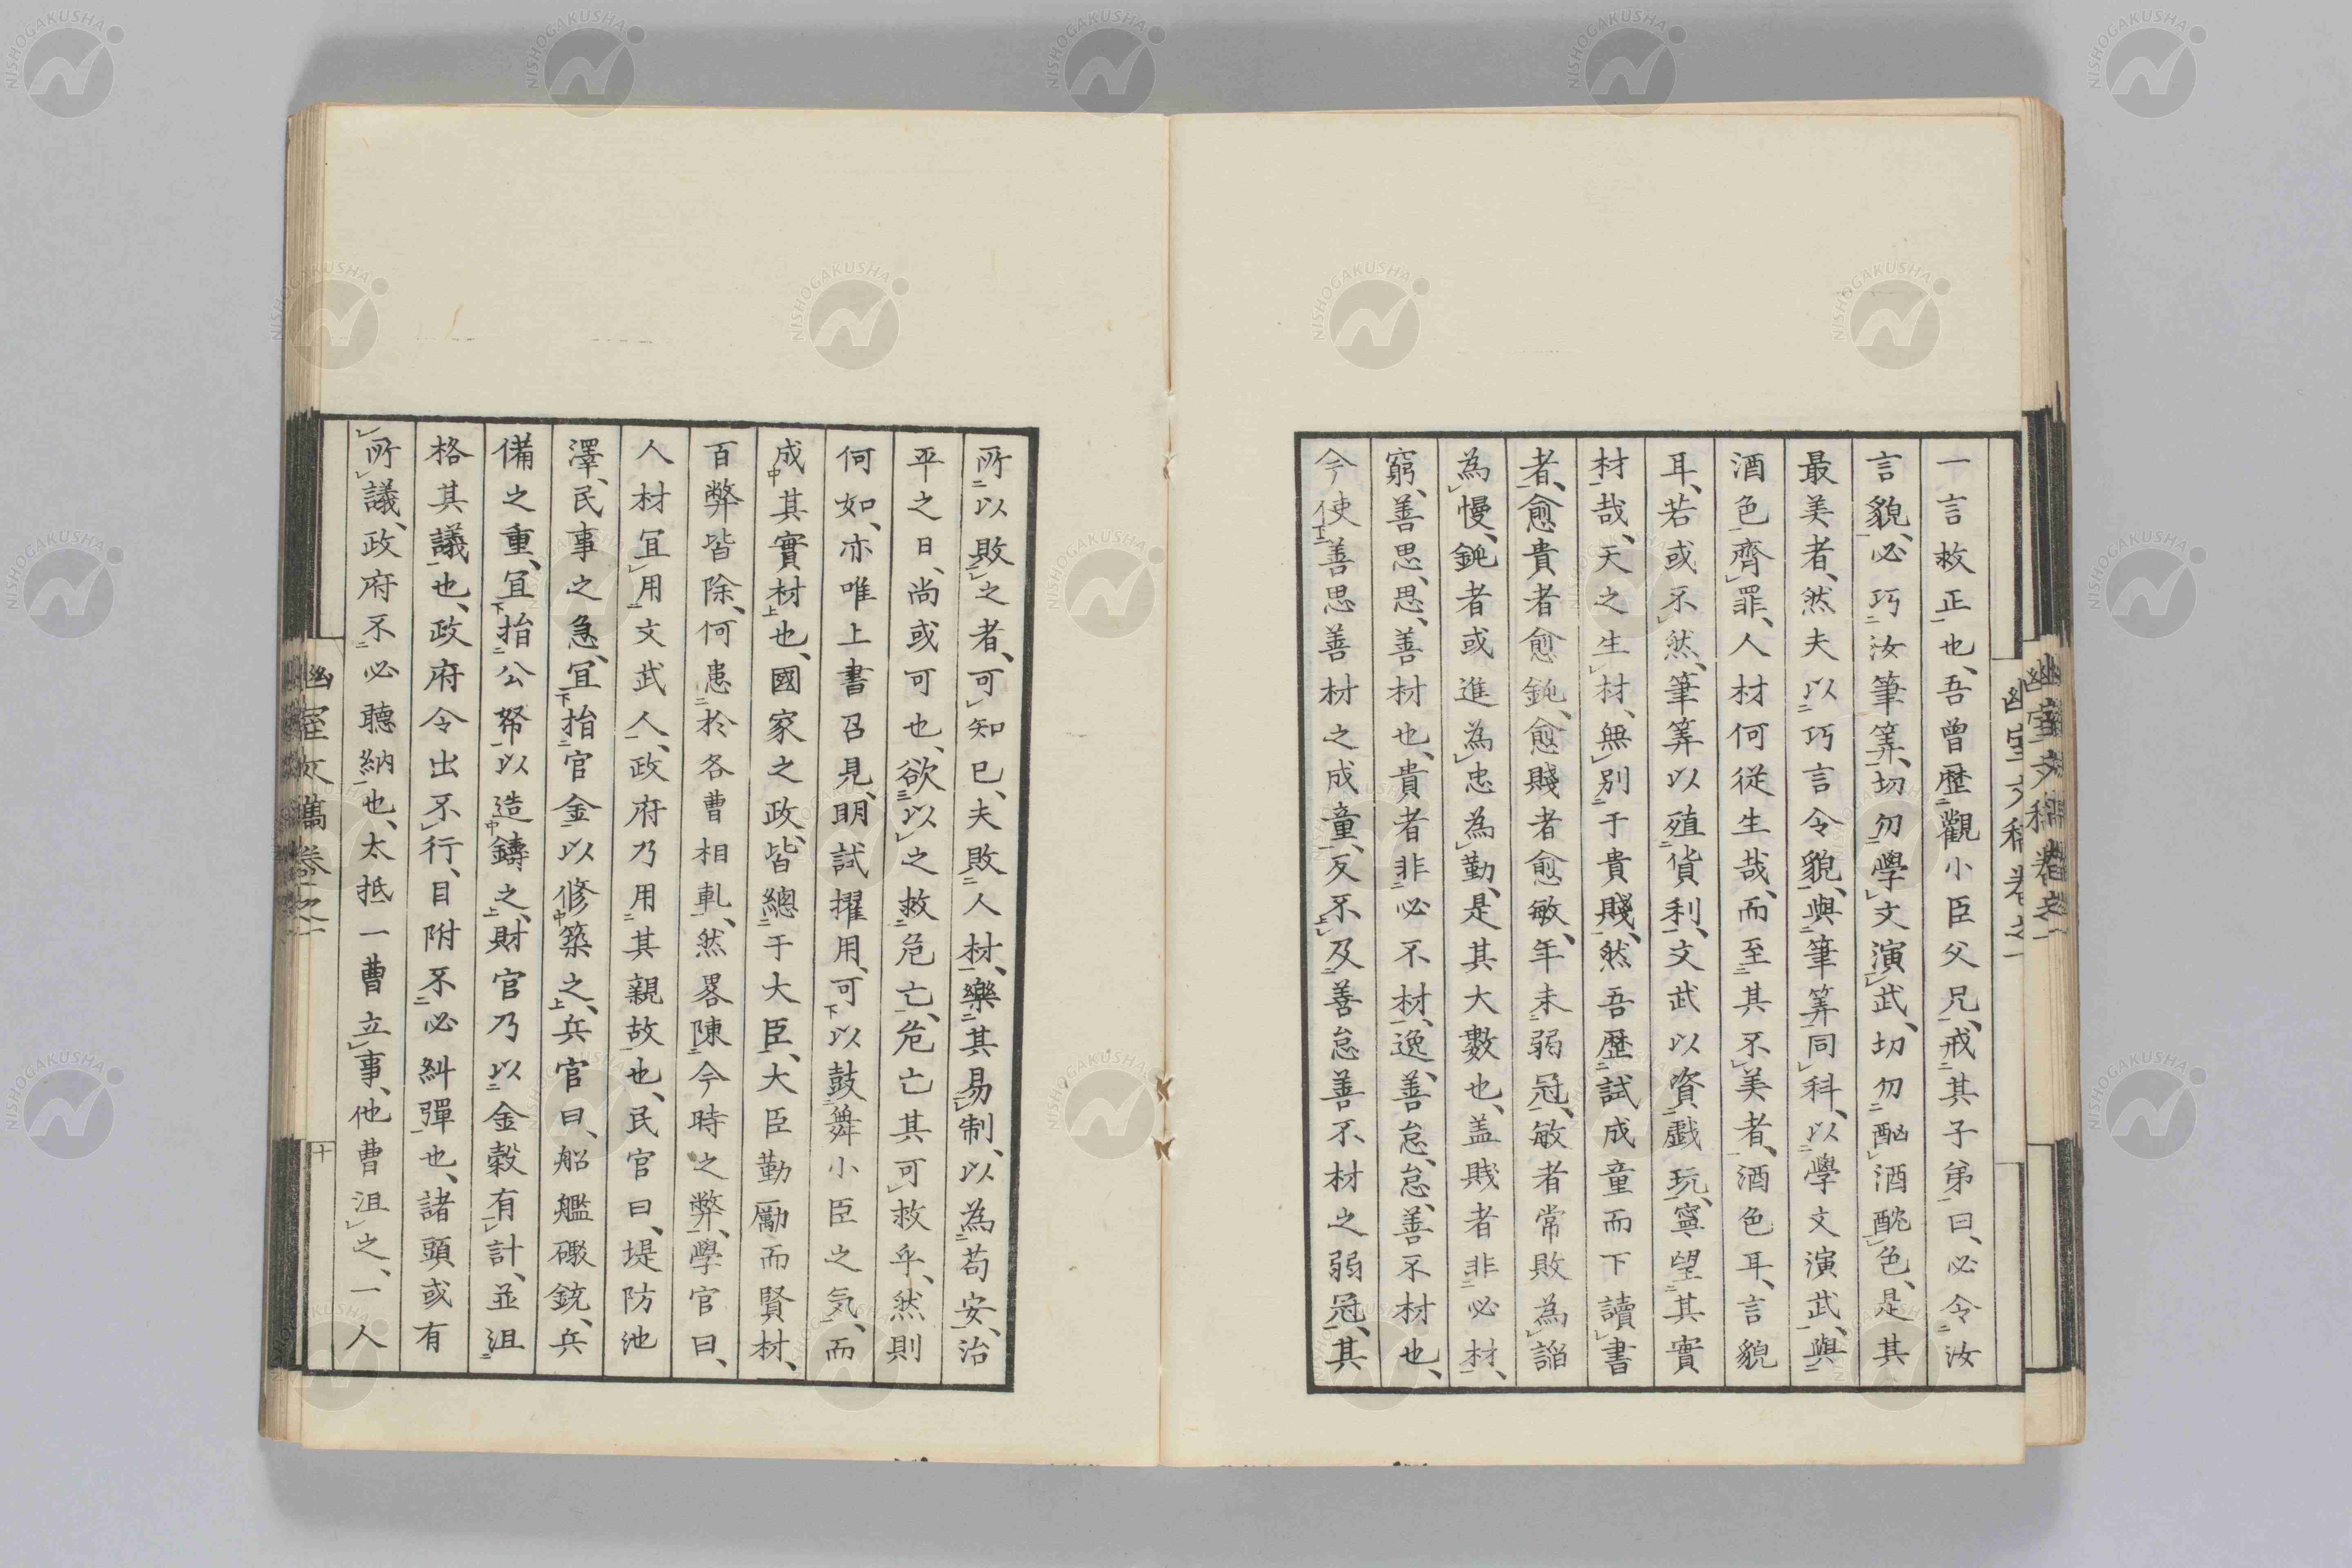 一言救正也、吾曾歷觀小臣父兄、戒其子弟曰、必令汝
言貌、必巧汝筆筭、切勿學文演武、切勿酗酒酖色、是其
最美者、然夫以巧言令貌、與筆筭同科、以學文演武、與
酒色齊罪、人材何從生哉、而至其不美者、酒色耳、言貌
耳、若或不然、筆筭以殖貨利、文武以資戯玩、寧望其實
材哉、天之生材、無別于貴賤、然吾歷試成童而下讀書
者、愈貴者愈鈍、愈賤者愈敏、年未弱冠、敏者常敗為諂
為慢、鈍者或進為忠為勤、是其大數也、盖賤者非必材、
窮、善思、思、善材也、貴者非必不材、逸、善怠、怠、善不材也、
今使善思善材之成童、反不及善怠善不材之弱冠、其
所以敗之者、可知已、夫敗人材、樂其易制、以為苟安、治
平之日、尚或可也、欲以之救危亡、危亡其可救乎、然則
何如、亦唯上書召見、明試擢用、可以鼓舞小臣之気、而
成其實材也、國家之政、皆總于大臣、大臣勤勵而賢材、
百弊皆除、何患於各曹相軋、然畧陳今時之弊、學官曰、
人材冝用文武人、政府乃用其親故也、民官曰、堤防池
澤、民事之急、冝捐官金以修築之、兵官曰、船艦礮銃、兵
備之重、冝捐公帑以造鑄之、財官乃以金穀有計、並沮
格其議也、政府令出不行、目附不必糾彈也、諸頭或有
所議、政府不必聽納也、太抵一曹立事、他曹沮之、一人
幽室文稿卷之一
十
NISHOGAKUSHA